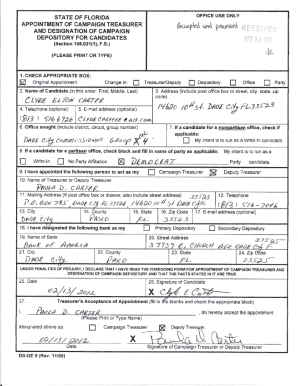 STATE OF FLORIDA
APPOINTMENT OF CAMPAIGN TREASURER
AND DESIGNATION OF CAMPAIGN
DEPOSITORY FOR CANDIDATES
(Section 106.021(1), F.S.)
(PLEASE PRINT OR TYPE)
OFFICE USE ONLY
Accepted and processed
RECEIVED
1. CHECK APPROPRIATE BOX:
Original Appointment Change in: Treasurer/Deputy Depository Office Party
2. Name of Candidate (in this order: First, Middle, Last)
CLYDE ELTON CARTER
3. Address (include post office box or street, city, state, zip code)
14620 10th St. DADE CITY FL 33523
4. Telephone (optional)
5. E-mail address (optional)
6. Office sought (include district, circuit, group number)
DADE CITY COMMISSIONER GROUP
7. If a candidate for a nonpartisan office, check if applicable:
My intent is to run as a Write-In candidate.
8. If a candidate for a partisan office, check block and fill in name of party as applicable: My intent is to run as a
Write-In No Party Affiliation DEMOCRAT Party candidate.
9. I have appointed the following person to act as my Campaign Treasurer Deputy Treasurer
10. Name of Treasurer or Deputy Treasurer
PAULA D. CARTER
11. Mailing Address (if post office box or drawer, also include street address)
12. Telephone
13. City
DADE CITY
14. County
PASCO
15. State
FL
16. Zip Code
17. E-mail address (optional)
18. I have designated the following bank as my Primary Depository Secondary Depository
19. Name of Bank
BANK OF AMERICA
20. Street Address
21. City
DADE CITY
22. County
PASCO
23. State
FL
24. Zip Code
33525
UNDER PENALTIES OF PERJURY, I DECLARE THAT I HAVE READ THE FOREGOING FORM FOR APPOINTMENT OF CAMPAIGN TREASURER AND DESIGNATION OF CAMPAIGN DEPOSITORY AND THAT THE FACTS STATED IN IT ARE TRUE.
25. Date
02/13/2012
26. Signature of Candidate
X
27. Treasurer's Acceptance of Appointment (fill in the blanks and check the appropriate block)
I, PAULA D. CARTER , do hereby accept the appointment
(Please Print or Type Name)
designated above as: Campaign Treasurer Deputy Treasurer
02/13/2012
X Paula D. Carter
Date
Signature of Campaign Treasurer or Deputy Treasurer
DS-DE 9 (Rev. 11/00)